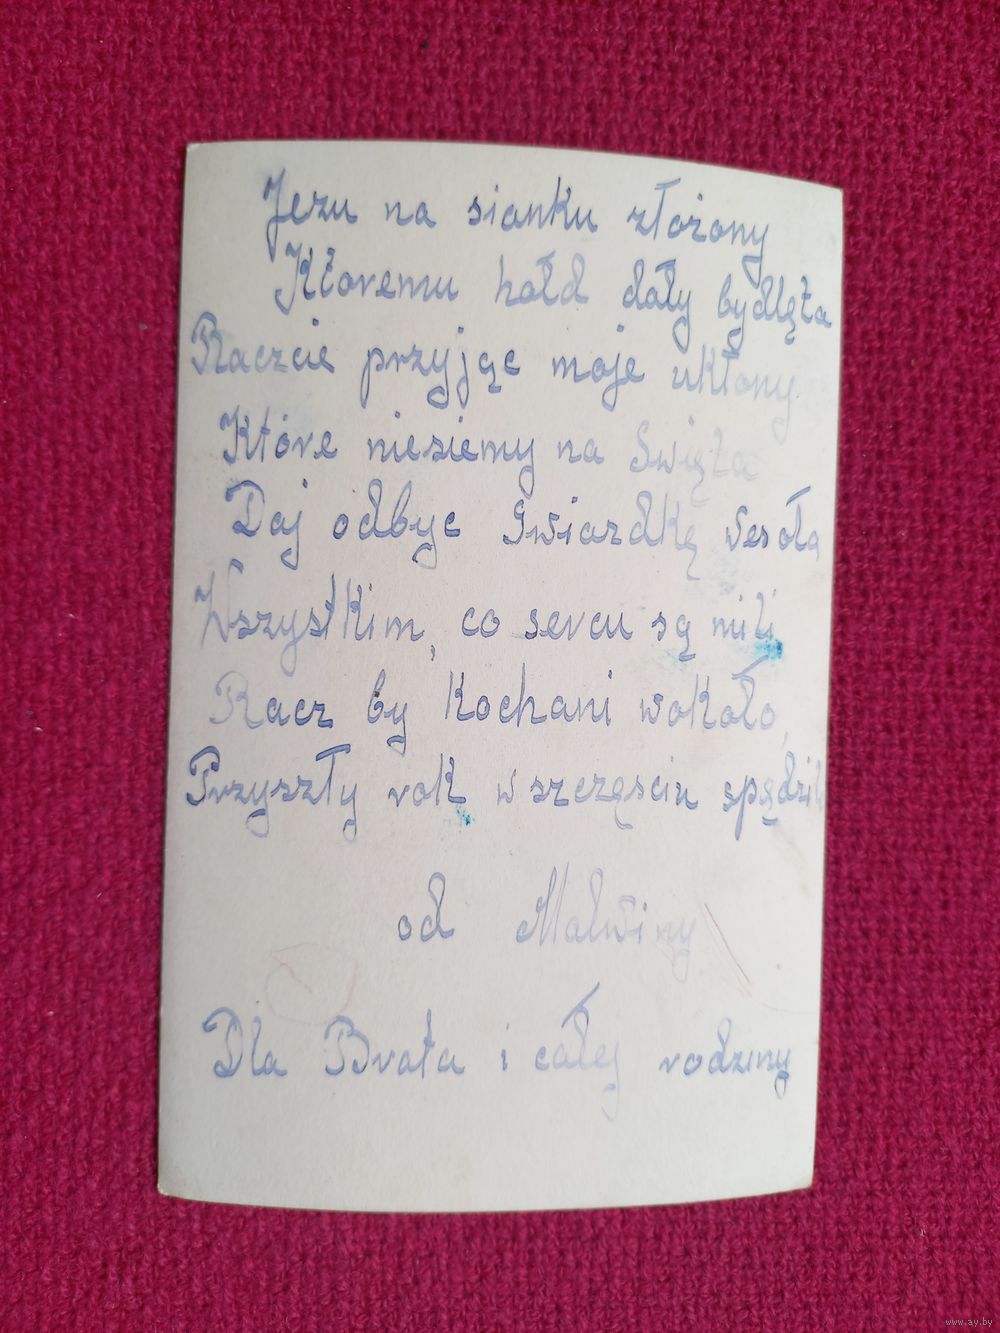 Jezu na sianku złożony
Któremu hołd dały bydlęta
Raczcie przyjąc moje ukłony
Które niesiemy na Swięta
Daj odbyc Gwiazdkę wesoła
Wszystkim, co sercu są mili,
Racz by kochani wokoło,
Przyszły rok w szczęsciu spędzili
od Malwiny
Dla Brata i całej rodziny
www.ay.by